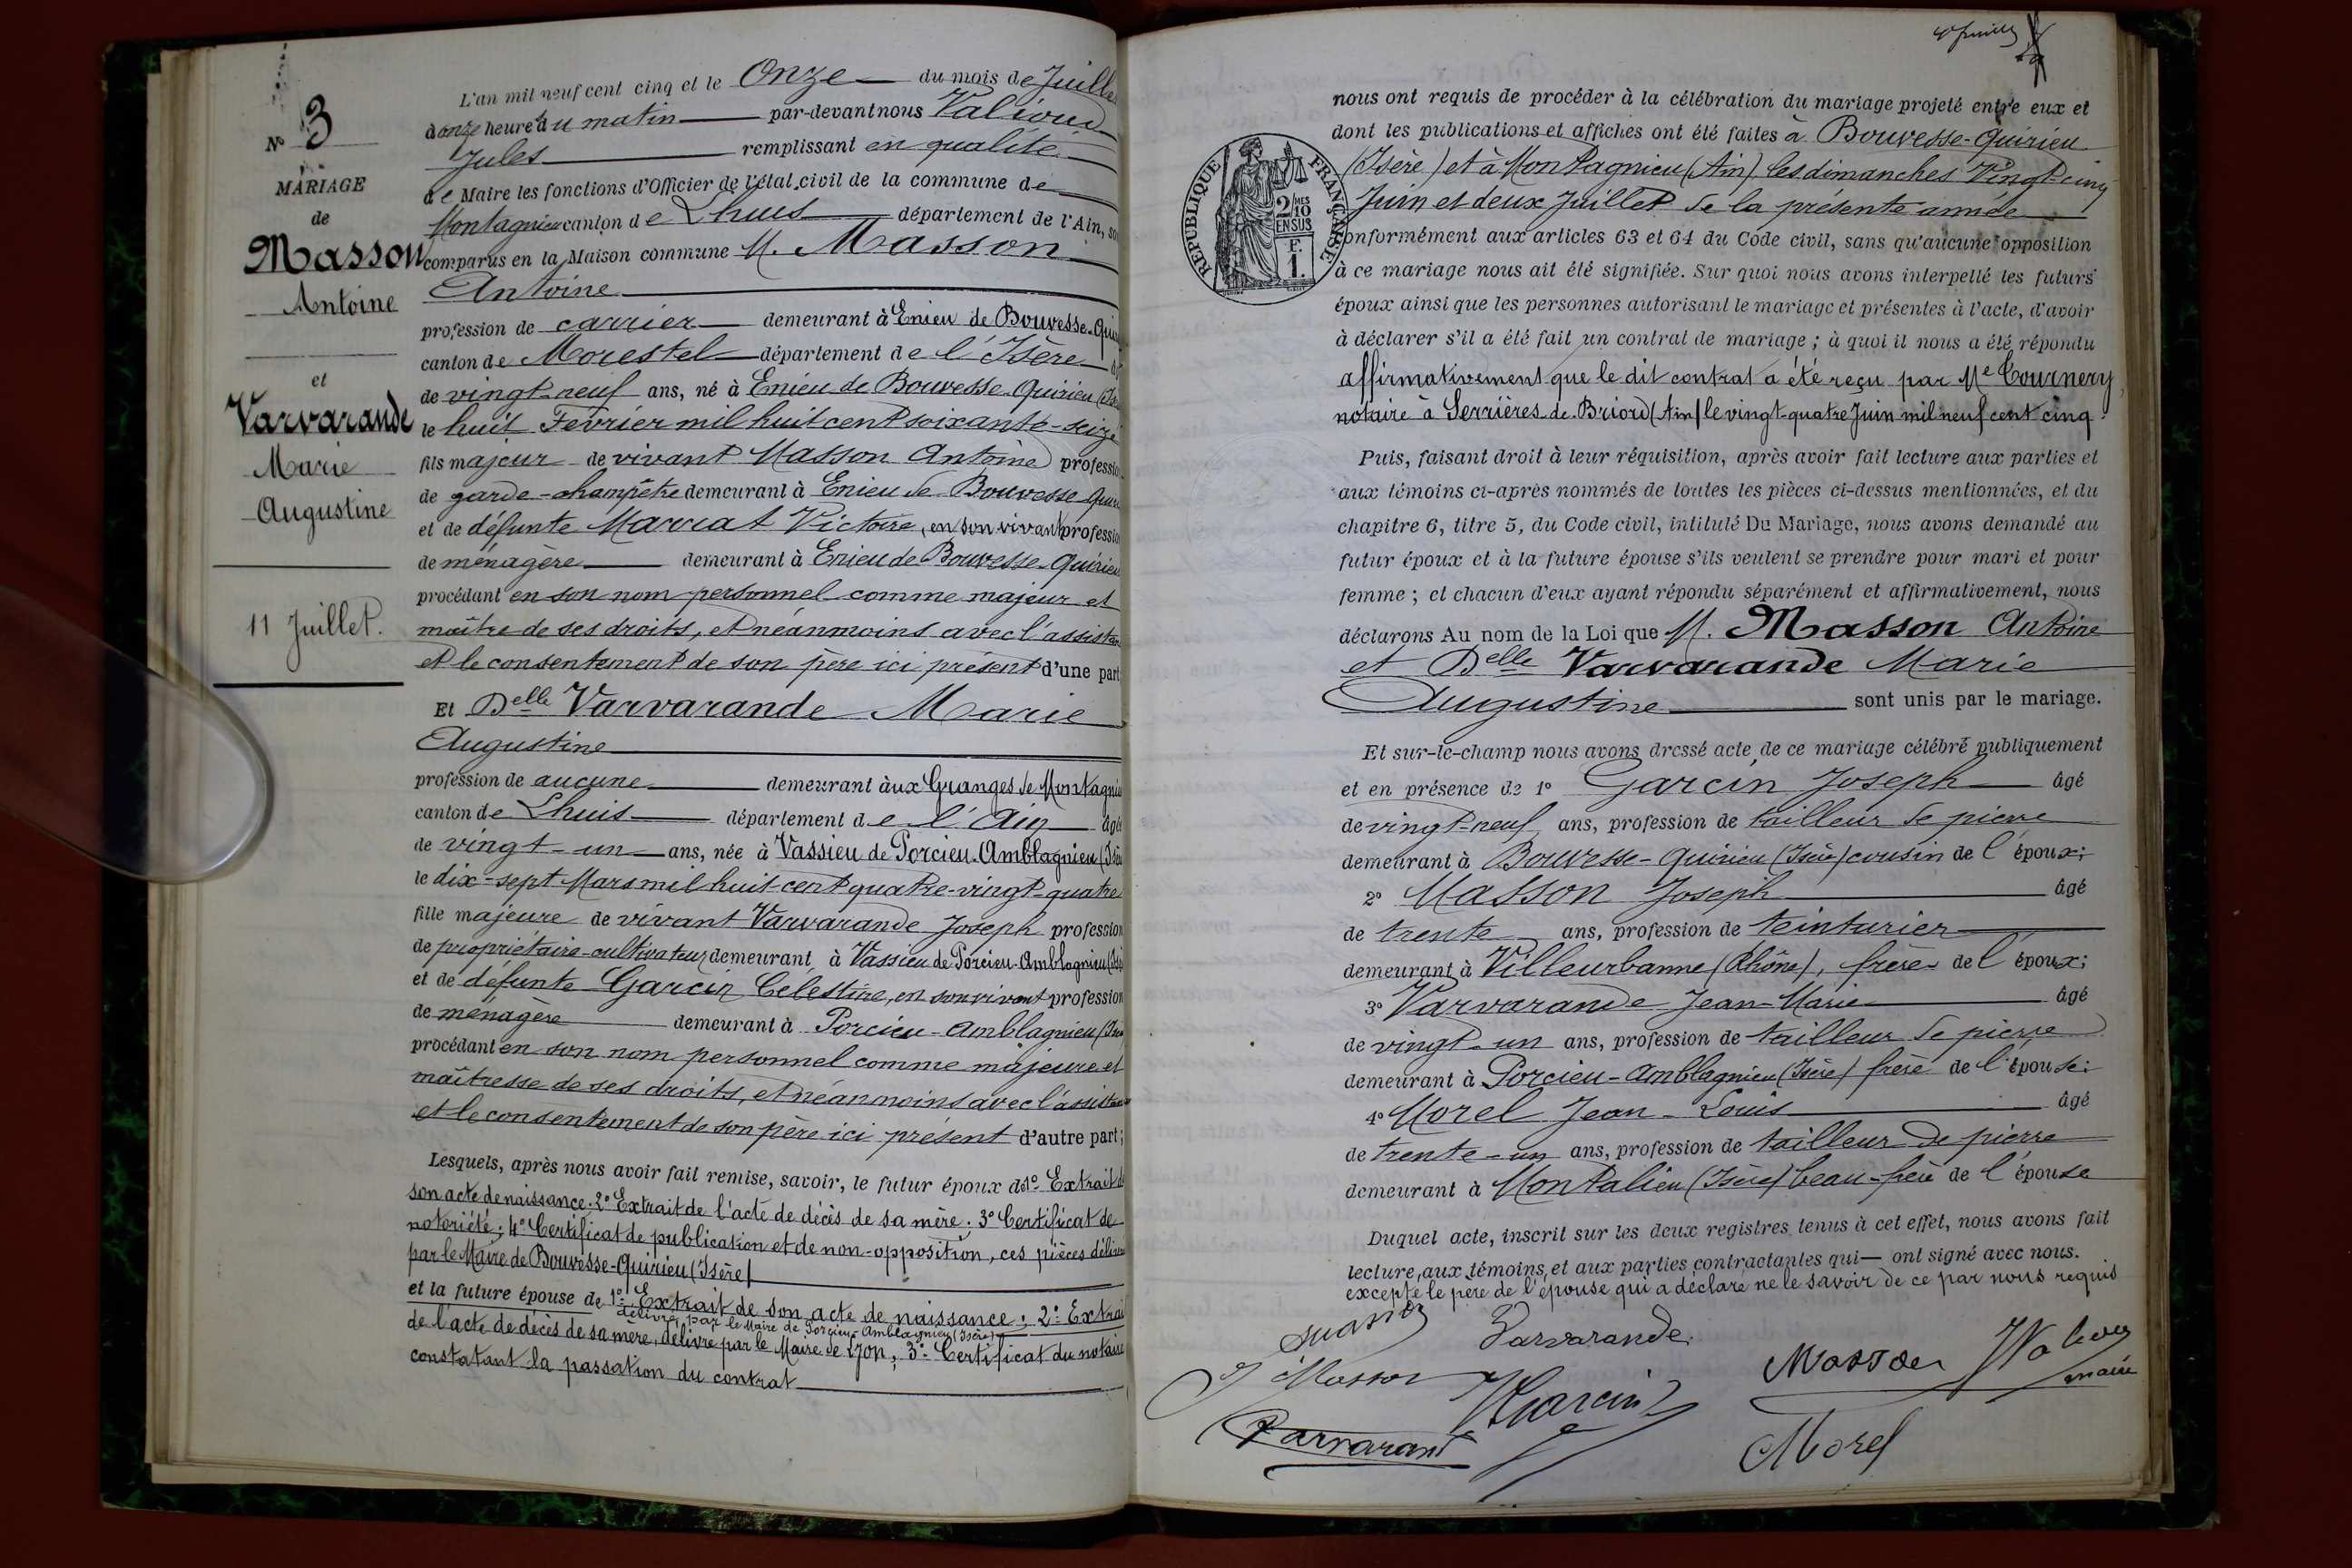 N° 3
MARIAGE
de
Masson
Antoine
et
Varvarande
Marie
Augustine
11 Juillet.
L'an mil neuf cent cinq et le Onze du mois de Juillet
à onze heures du matin par-devant nous Valioud
Jules remplissant en qualité
de Maire les fonctions d'Officier de l'état civil de la commune de
Montagnieu canton de Lhuis département de l'Ain, son
comparus en la Maison commune M. Masson
Antoine
profession de carrier demeurant à Enieu de Bouvesse-Quiri
canton de Morestel département de l'Isère
de vingt-neuf ans, né à Enieu de Bouvesse-Quirieu (Isè
le huit Février mil huit cent soixante-seize
fils majeur de vivant Masson Antoine profession
de garde-champêtre demeurant à Enieu de Bouvesse Quirieu
et de défunte Marcat Victoire, en son vivant profession
de ménagère demeurant à Enieu de Bouvesse-Quirieu
procédant en son nom personnel comme majeur et
maître de ses droits, et néanmoins avec l'assistan
et le consentement de son père ici présent d'une part
Et Delle Varvarande Marie
Augustine
profession de aucune demeurant aux Granges de Montagnieu
canton de Lhuis département de l'Ain âgée
de vingt-un ans, née à Vassieu de Porcieu-Amblagnieu (Isère
le dix-sept Mars mil huit-cent quatre-vingt-quatre
fille majeure de vivant Varvarande Joseph profession
de propriétaire-cultivateur demeurant à Vassieu de Porcieu-Amblagnieu (Isè
et de défunte Garcin Célestine, en son vivant profession
de ménagère demeurant à Porcieu-Amblagnieu (Isère
procédant en son nom personnel comme majeure et
maîtresse de ses droits, et néanmoins avec l'assistance
et le consentement de son père ici présent d'autre part;
Lesquels, après nous avoir fait remise, savoir, le futur époux de 1° Extrait de
son acte de naissance; 2° Extrait de l'acte de décès de sa mère; 3° Certificat de
notoriété; 4° Certificat de publication et de non-opposition, ces pièces délivré
par le Maire de Bouvesse-Quirieu (Isère)
et la future épouse de 1° Extrait de son acte de naissance; 2° Extrait
délivré par le Maire de Porcieu-Amblagnieu (Isère)
de l'acte de décès de sa mère, délivré par le Maire de Lyon; 3° Certificat du notaire
constatant la passation du contrat
nous ont requis de procéder à la célébration du mariage projeté entre eux et
dont les publications et affiches ont été faites à Bouvesse-Quirieu
(Isère) et à Montagnieu (Ain) les dimanches Vingt-cinq
Juin et deux Juillet de la présente année
conformément aux articles 63 et 64 du Code civil, sans qu'aucune opposition
à ce mariage nous ait été signifiée. Sur quoi nous avons interpellé les futurs
époux ainsi que les personnes autorisant le mariage et présentes à l'acte, d'avoir
à déclarer s'il a été fait un contrat de mariage; à quoi il nous a été répondu
affirmativement que le dit contrat a été reçu par Me Tournery,
notaire à Serrières-de-Briord (Ain) le vingt-quatre Juin mil neuf cent cinq.
Puis, faisant droit à leur réquisition, après avoir fait lecture aux parties et
aux témoins ci-après nommés de toutes les pièces ci-dessus mentionnées, et du
chapitre 6, titre 5, du Code civil, intitulé Du Mariage, nous avons demandé au
futur époux et à la future épouse s'ils veulent se prendre pour mari et pour
femme; et chacun d'eux ayant répondu séparément et affirmativement, nous
déclarons Au nom de la Loi que M. Masson Antoine
et Delle Varvarande Marie
Augustine sont unis par le mariage.
Et sur-le-champ nous avons dressé acte de ce mariage célébré publiquement
et en présence de 1° Garcin Joseph âgé
de vingt-neuf ans, profession de tailleur de pierre
demeurant à Bouvesse-Quirieu (Isère) cousin de l'époux;
2° Masson Joseph âgé
de trente ans, profession de teinturier
demeurant à Villeurbanne (Rhône), frère de l'époux;
3° Varvarande Jean-Marie âgé
de vingt-un ans, profession de tailleur de pierre
demeurant à Porcieu-Amblagnieu (Isère) frère de l'épouse;
4° Morel Jean-Louis âgé
de trente-un ans, profession de tailleur de pierre
demeurant à Montalieu (Isère) beau-frère de l'épouse
Duquel acte, inscrit sur les deux registres tenus à cet effet, nous avons fait
lecture aux témoins et aux parties contractantes qui ont signé avec nous.
excepté le père de l'épouse qui a déclaré ne le savoir de ce par nous requis
Varvarande
Masson
J Masson
Garcin
maire
Varvarant
Morel
RÉPUBLIQUE FRANÇAISE
2/10 MES
EN SUS
F.
1.